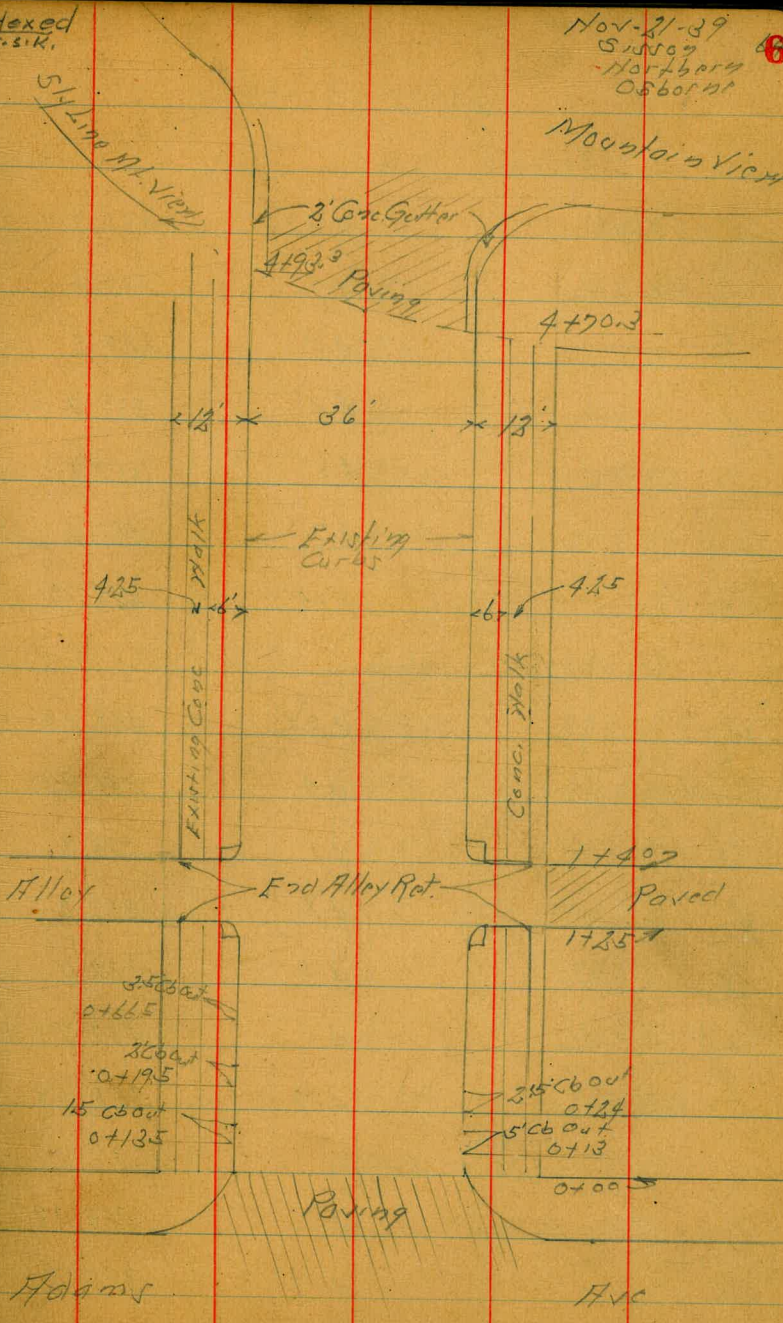 Indexed
F.S.K.
Nov-21-39
Sisson
Northern
Osborne
6
Mountain View
S'ly Line Mt. View
2' Conc. Gutter
4+93.3
Paving
4+70.3
12'
36'
12'
Existing
Curbs
4.25
6'
6'
4.25
Existing Conc Walk
Conc. Walk
1+40
Alley
End Alley Ret.
Paved
1+25
3.5 Cb out
0+66.5
2' Cb out
0+19.5
1.5 Cb out
0+13.5
2.5' Cb out
0+24
5' Cb Out
0+13
0+00
Paving
Adams
Ave